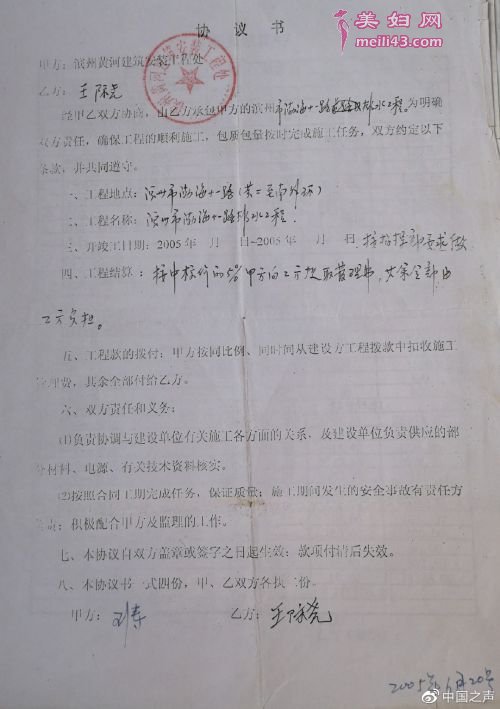 美妇网
meili43.com
协 议 书
甲方：滨州黄河建筑安装工程处
乙方：王际尧
经甲乙双方协商，由乙方承包甲方的滨州市渤海十一路排水工程。为明确
双方责任，确保工程的顺利施工，包质包量按时完成施工任务，双方约定以下
条款，并共同遵守。
一、工程地点：滨州市渤海十一路（黄二至南外环）
二、工程名称：滨州市渤海十一路排水工程。
三、开竣工日期：2005年 月 日~2005年 月 日 按指挥部要求做
四、工程结算：按中标价的5% 甲方向乙方提取管理费，其余全部由
乙方负担。
五、工程款的拨付：甲方按同比例、同时间从建设方工程拨款中扣收施工
管理费，其余全部付给乙方。
六、双方责任和义务：
⑴负责协调与建设单位有关施工各方面的关系，及建设单位负责供应的部
分材料、电源、有关技术资料核实。
⑵按照合同工期完成任务，保证质量；施工期间发生的安全事故有责任方
负责；积极配合甲方及监理的工作。
七、本协议自双方盖章或签字之日起生效；款项付清后失效。
八、本协议书一式四份，甲、乙双方各执二份。
甲方： 乙方：王际尧
2005年6月20号
@中国之声